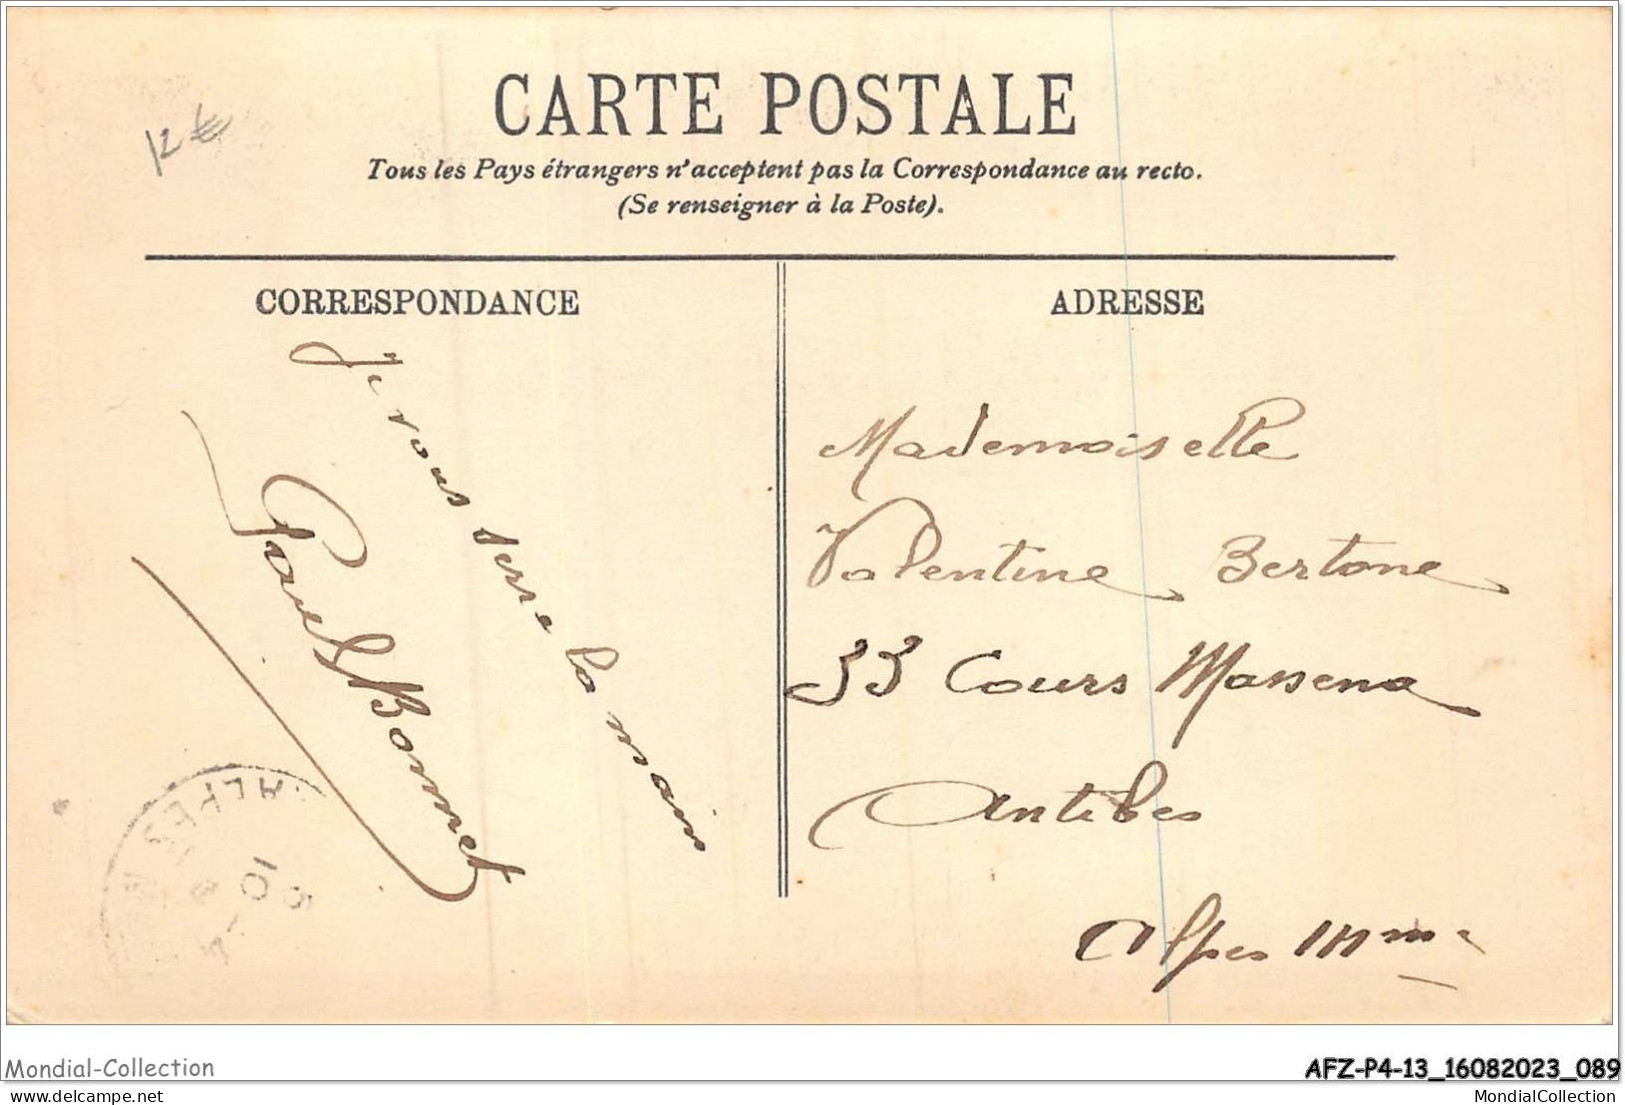 12€
CARTE POSTALE
Tous les Pays étrangers n'acceptent pas la Correspondance au recto.
(Se renseigner à la Poste).
CORRESPONDANCE
Je vous serre la main
Paul Bonnet
ALPES
ADRESSE
Mademoiselle
Valentine Bertone
33 Cours Massena
Antibes
Alpes Mmes
Mondial-Collection
AFZ-P4-13_16082023_089
delcampe.net
MondialCollection